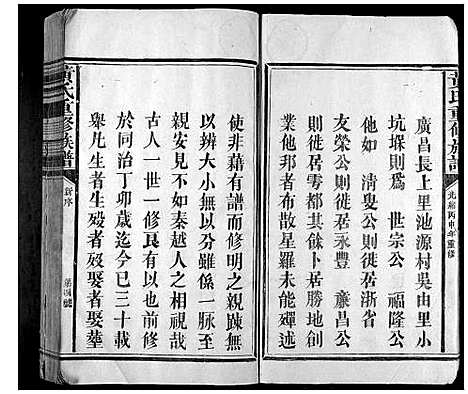 黃氏重修族譜
光緒丙申年重修
廣昌長上里池源村吳由里小
坑堁則爲 世宗公 福隆公
他如 清叟公則徙居浙省
友榮公則徙居永豐 廉昌公
則徙居雩都其餘卜居勝地創
業他邦者散處星羅未能殫述
使非藉有譜而修明之親踈無
以辨大小無以分雖係一脉至
親安見不如秦越人之相視哉
古人一世一修良有以也前修
於同治丁卯歲迄今已三十載
舉凡生者生歿者歿娶者娶塟
黃氏重修族譜
新序